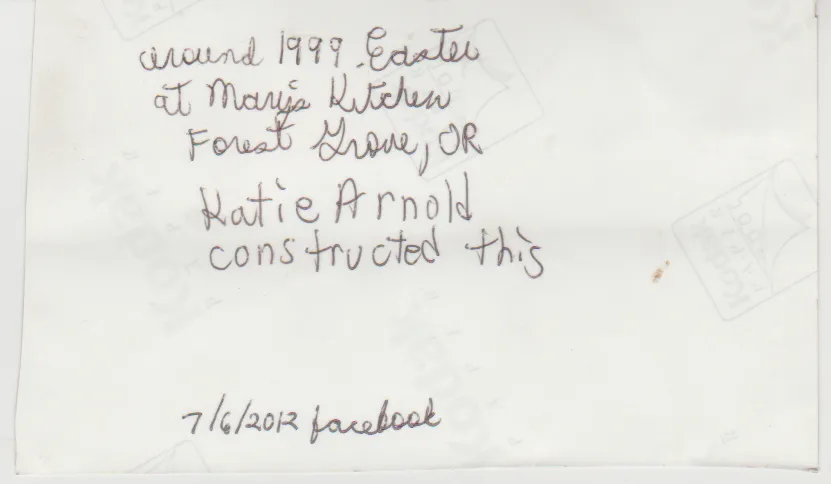 around 1999 Easter
at Marys Kitchen
Forest Grove, OR
Katie Arnold
constructed this
7/6/2012 facebook